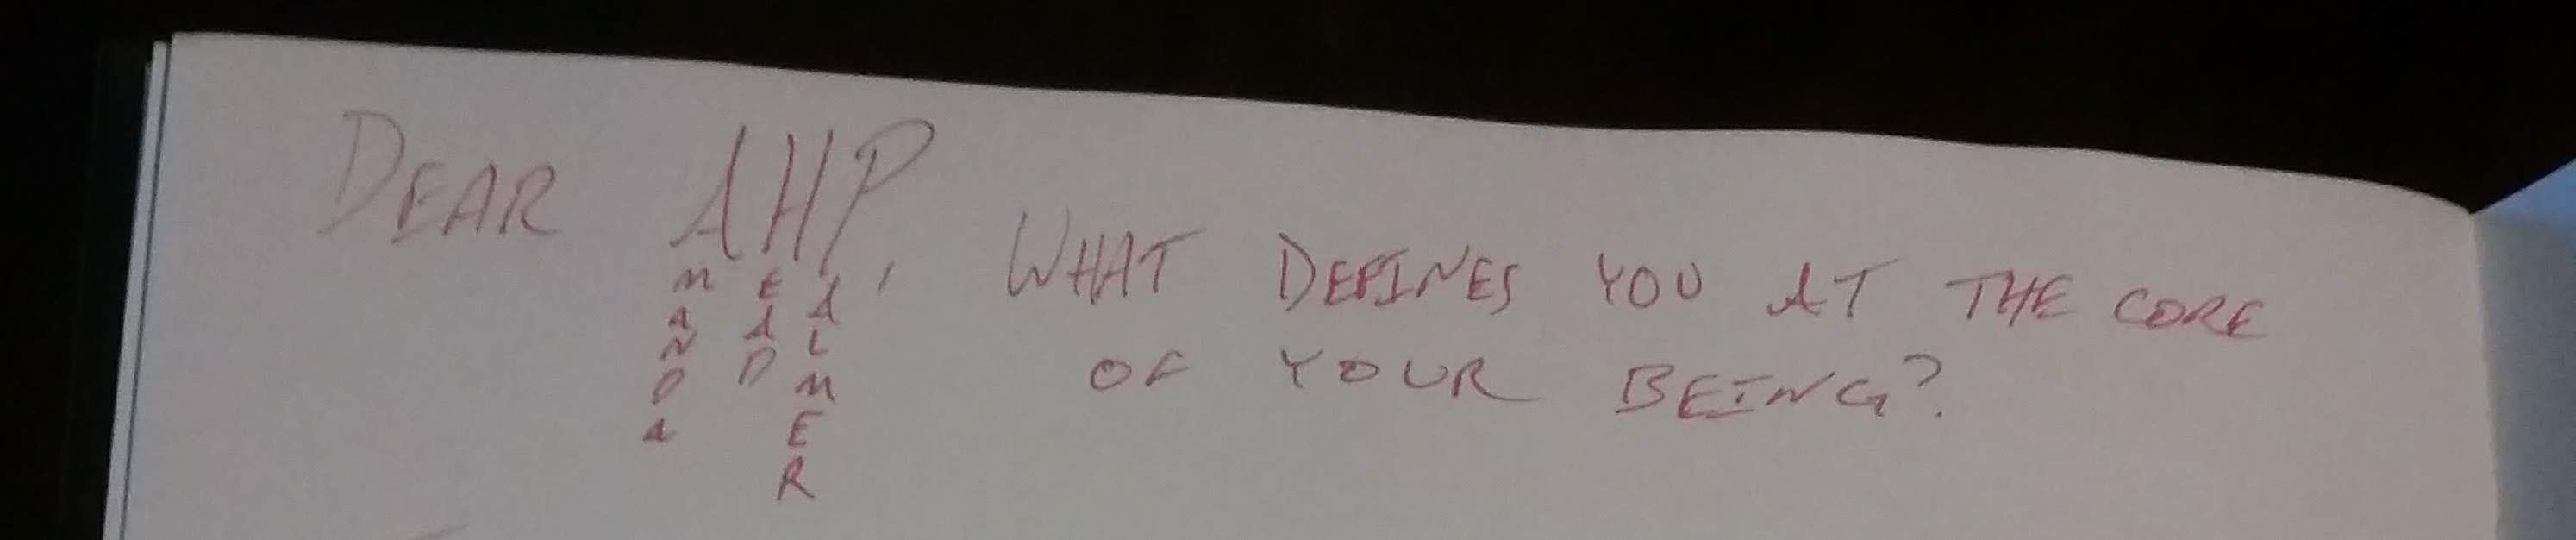 DEAR AHP, WHAT DEFINES YOU AT THE CORE
OF YOUR BEING?
MANDA
EAD
AALMER